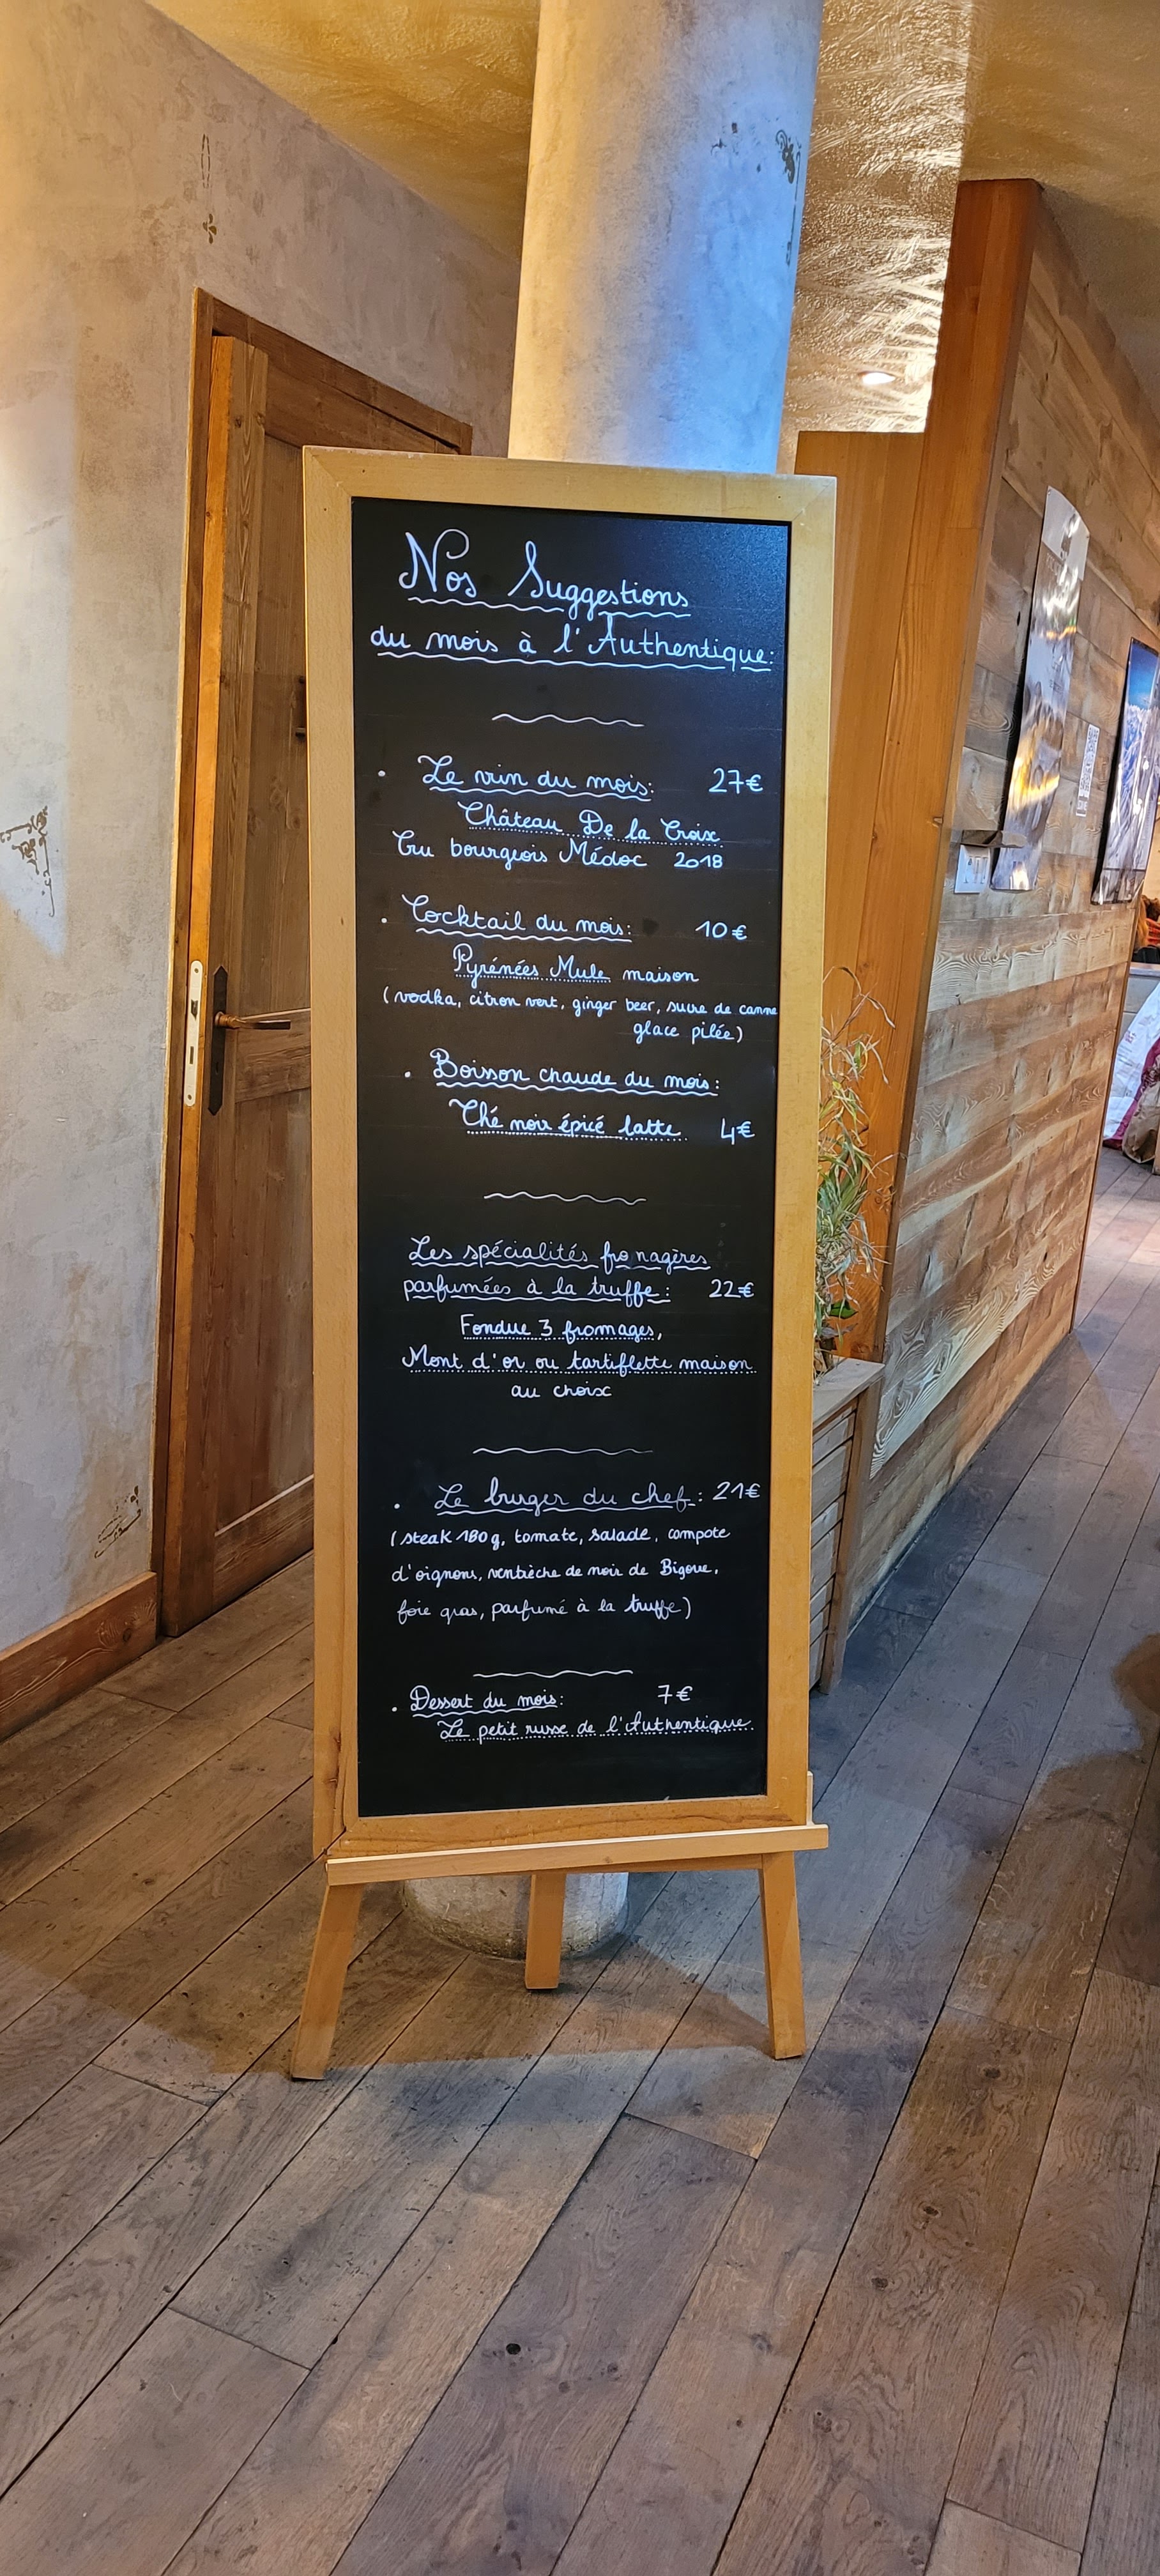 Nos Suggestions
du mois à l'Authentique:
• Le vin du mois: 27€
Château De la Croix
Cru bourgeois Médoc 2018
• Cocktail du mois: 10€
Pyrénées Mule maison
(vodka, citron vert, ginger beer, sucre de canne
glace pilée)
• Boisson chaude du mois:
Thé noir épicé latte 4€
Les spécialités fromagères
parfumées à la truffe: 22€
Fondue 3 fromages,
Mont d'or ou tartiflette maison
au choix
• Le burger du chef: 21€
(steak 180g, tomate, salade, compote
d'oignons, ventrèche de noir de Bigorre,
foie gras, parfumé à la truffe)
• Dessert du mois: 7€
Le petit russe de l'Authentique.